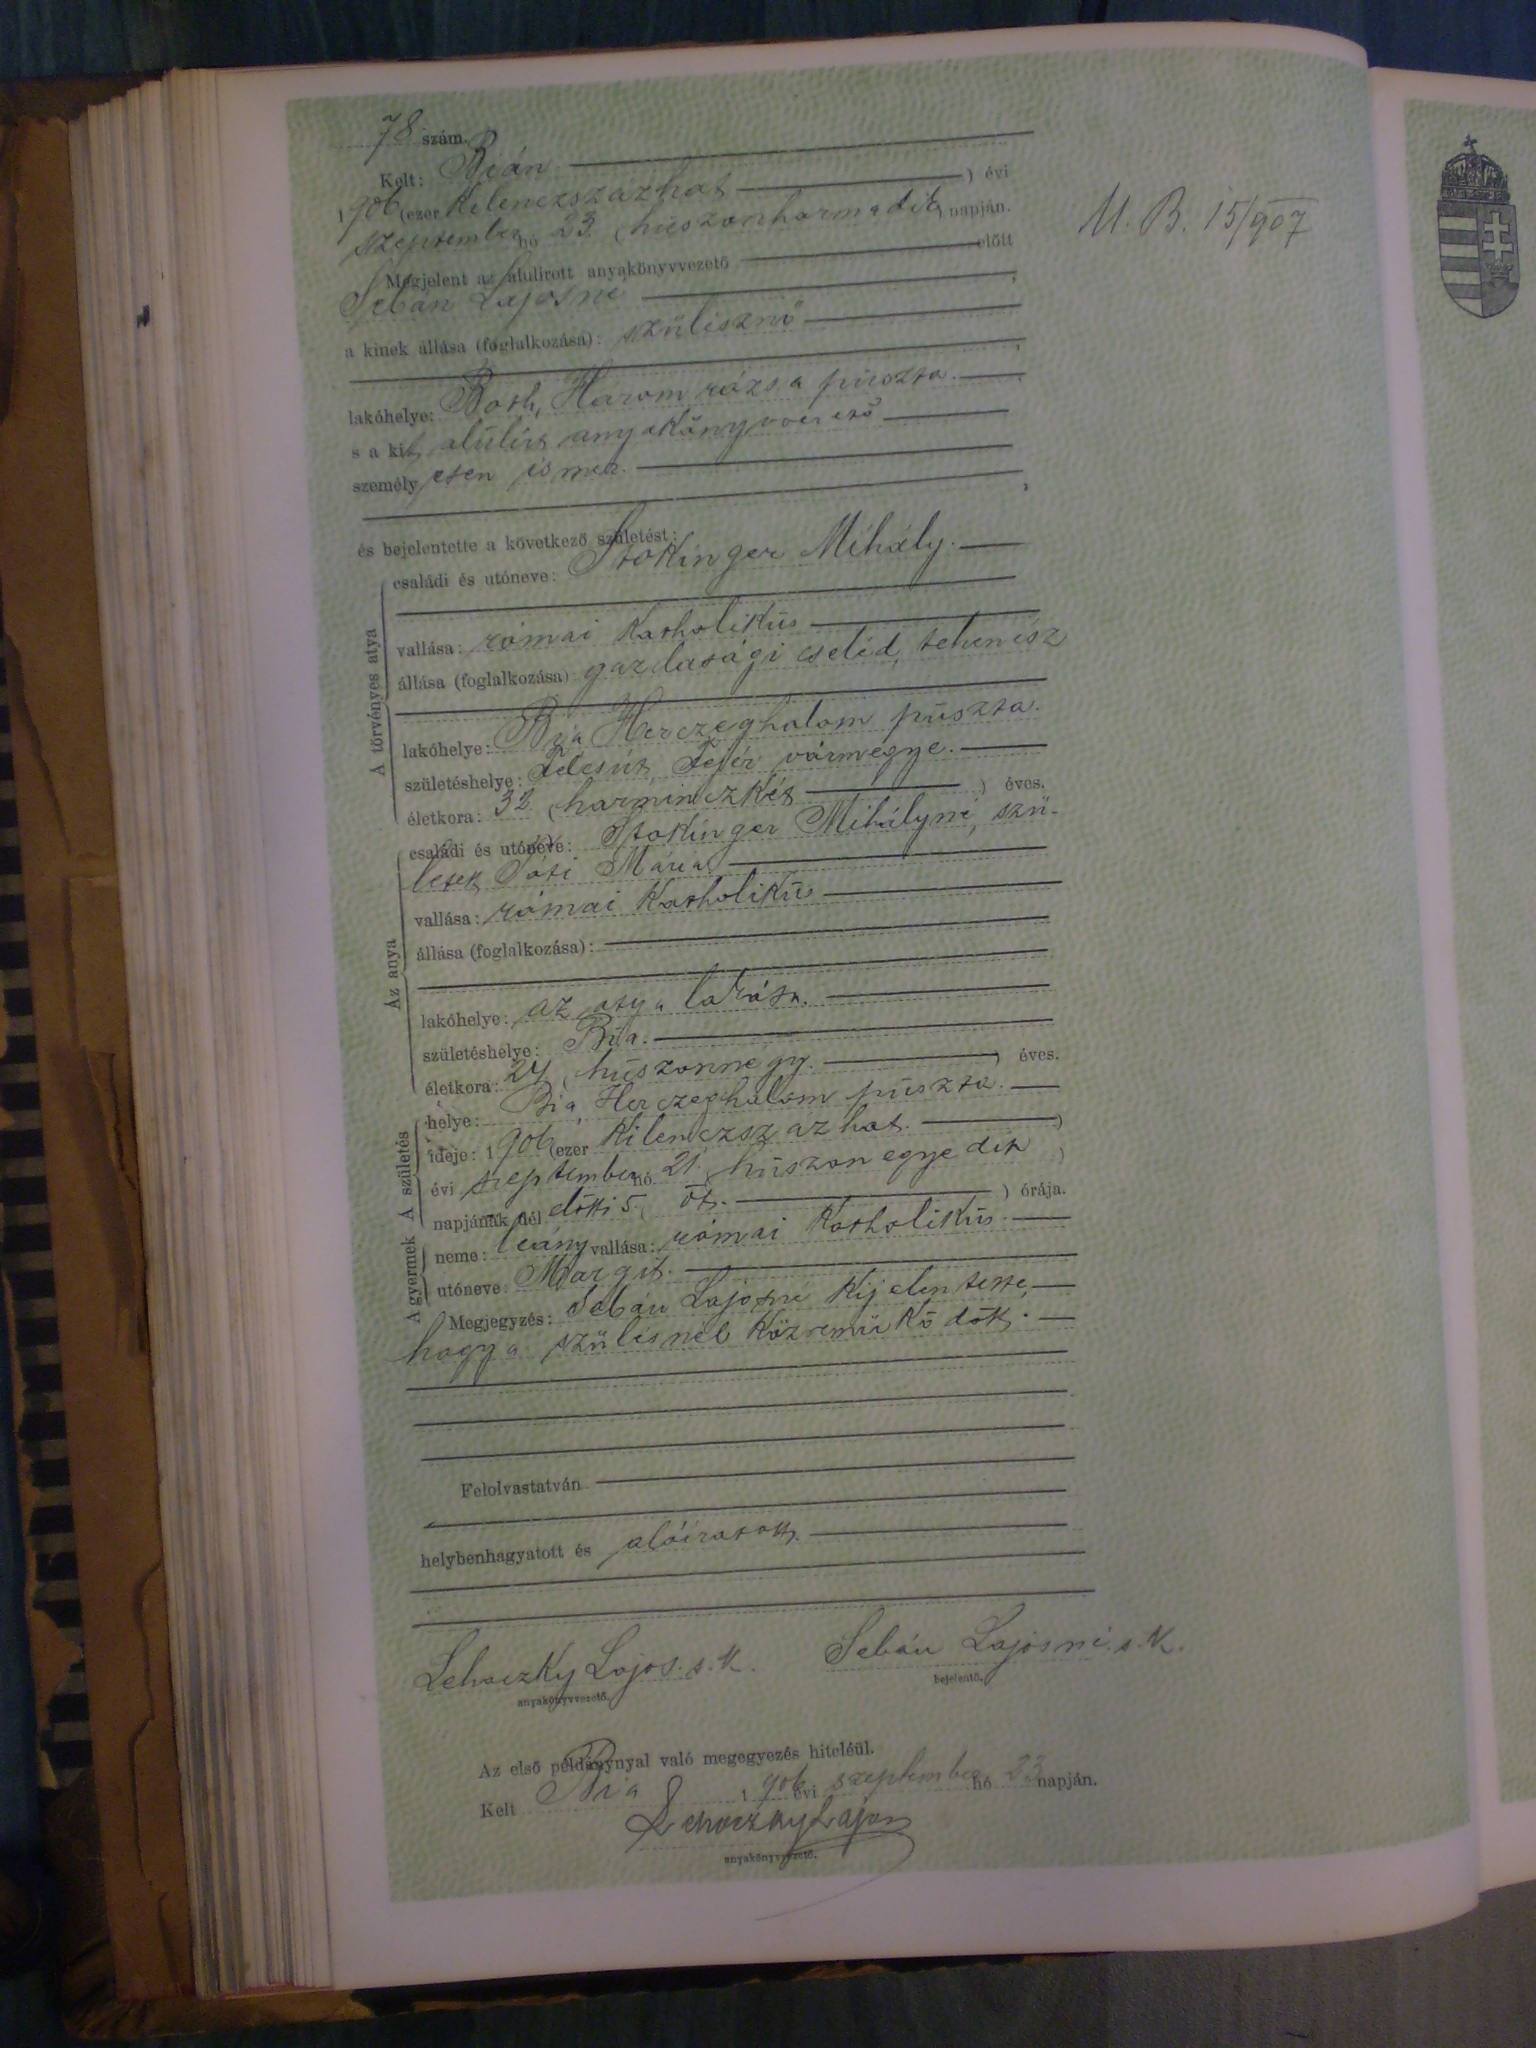 78 szám.
Kelt: Bián
1906 (ezer kilenczszázhat ) évi
szeptember hó 23. (huszonharmadik) napján.
M. B. 15/907
Megjelent az alulirott anyakönyvvezető előtt
Sebán Lajosné
a kinek állása (foglalkozása): szülésznő
lakóhelye: Both, Háromrózsa puszta.
s a kit alulirt anyakönyvvezető
személyesen ismer.
és bejelentette a következő születést:
A törvényes atya
családi és utóneve: Stokinger Mihály.
vallása: római katholikus
állása (foglalkozása): gazdasági cseléd, tehenész
lakóhelye: Bia Herczeghalom puszta.
születéshelye: Felcsút, Fejér vármegye.
életkora: 32 (harminczkét ) éves.
Az anya
családi és utóneve: Stokinger Mihályné, szü-
letett Tóti Mária
vallása: római katholikus
állása (foglalkozása):
lakóhelye: az atya lakása.
születéshelye: Bia.
életkora: 24 (huszonnégy. ) éves.
A születés
helye: Bia, Herczeghalom puszta.
ideje: 1906 (ezer kilenczszázhat. )
évi szeptember hó 21 (huszonegyedik )
napjának dél előtti 5. ( öt. ) órája.
A gyermek
neme: leány vallása: római katholikus
utóneve: Margit.
Megjegyzés: Sebán Lajosné kijelentette,
hogy a szülésnél közreműködött.
Felolvastatván
helybenhagyatott és aláiratott.
Lehoczky Lajos. s. k. Sebán Lajosné. s. k.
anyakönyvvezető. bejelentő.
Az első példánynyal való megegyezés hiteléül.
Kelt Bia 1906 évi szeptember hó 23 napján.
Lehoczky Lajos
anyakönyvvezető.